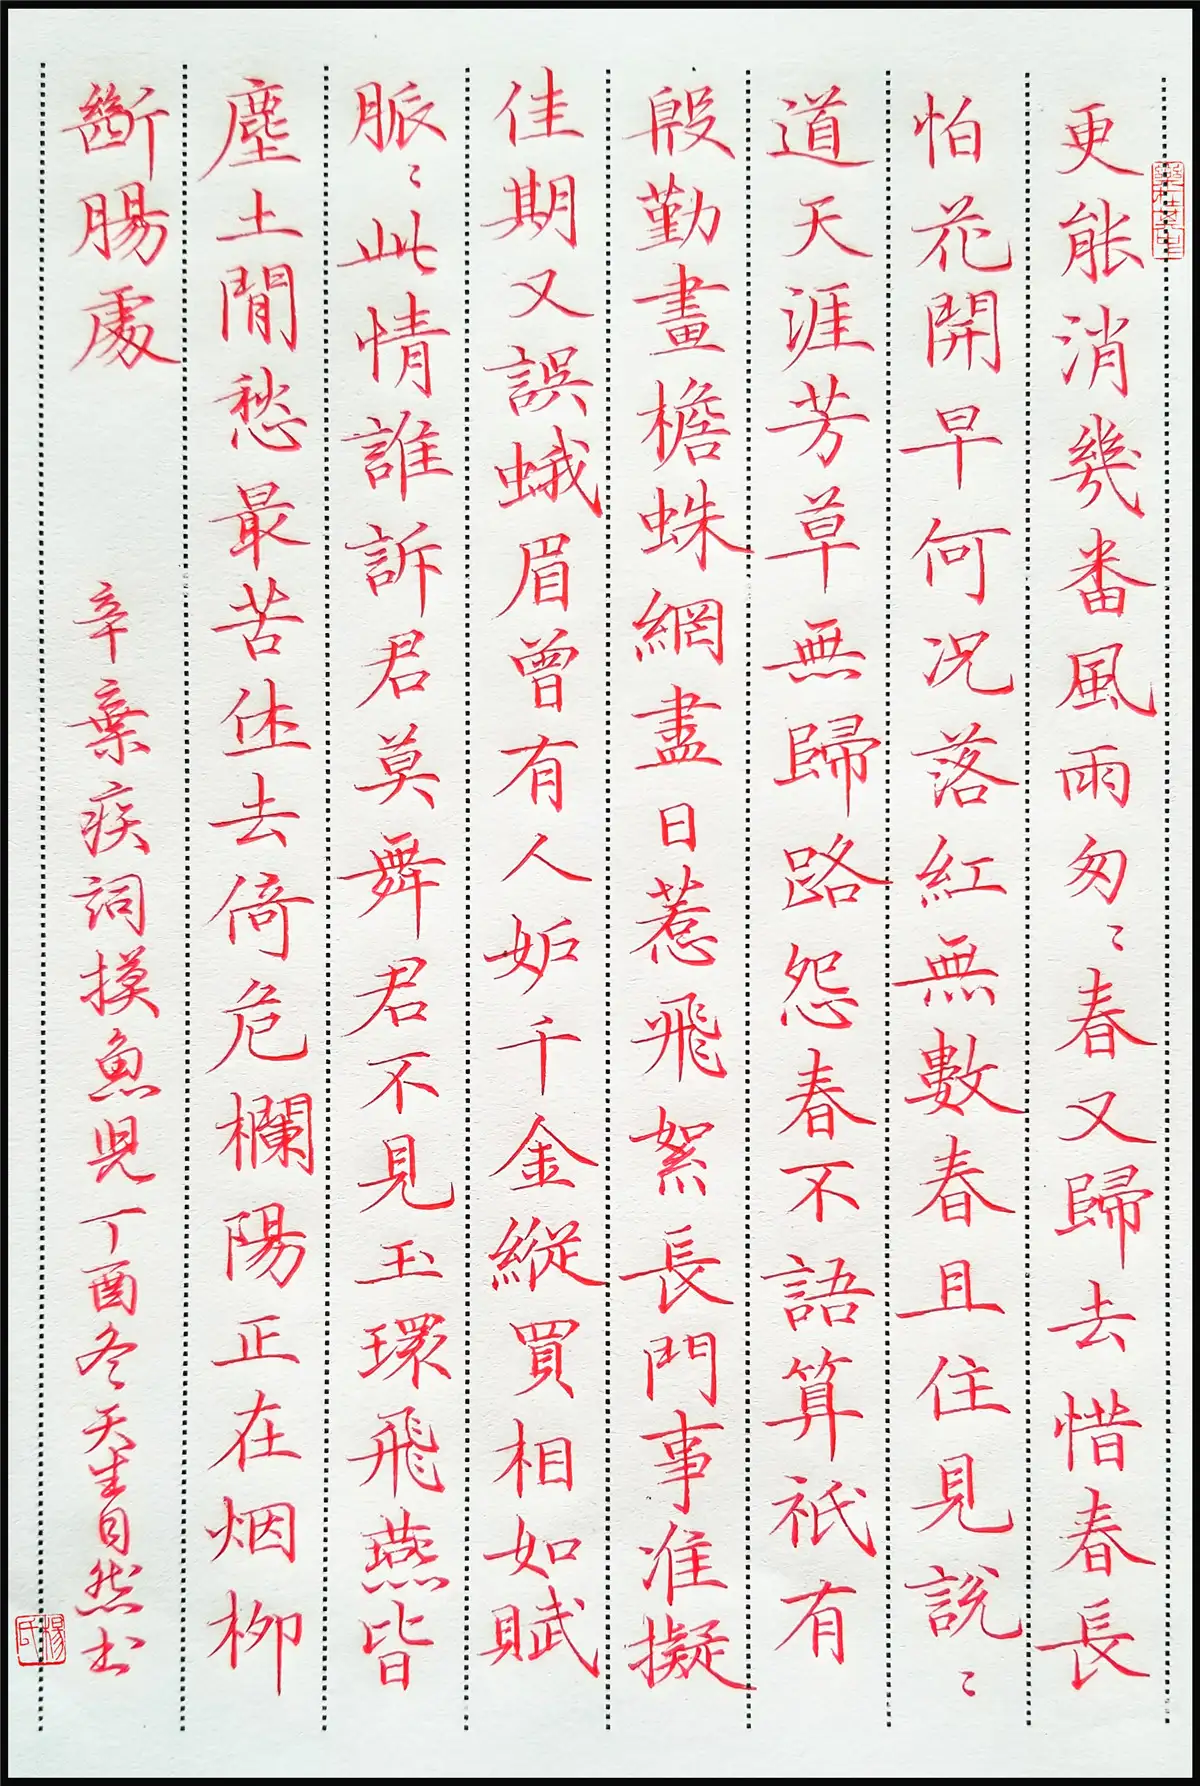 更能消幾番風雨匆〻春又歸去惜春長
怕花開早何況落紅無數春且住見說〻
道天涯芳草無歸路怨春不語算祇有
殷勤畫檐蛛網盡日惹飛絮長門事准擬
佳期又誤蛾眉曾有人妒千金縱買相如賦
脈〻此情誰訴君莫舞君不見玉環飛燕皆
塵土閒愁最苦休去倚危欄陽正在烟柳
斷腸處
辛棄疾詞摸魚兒丁酉冬天生自然书
楊氏